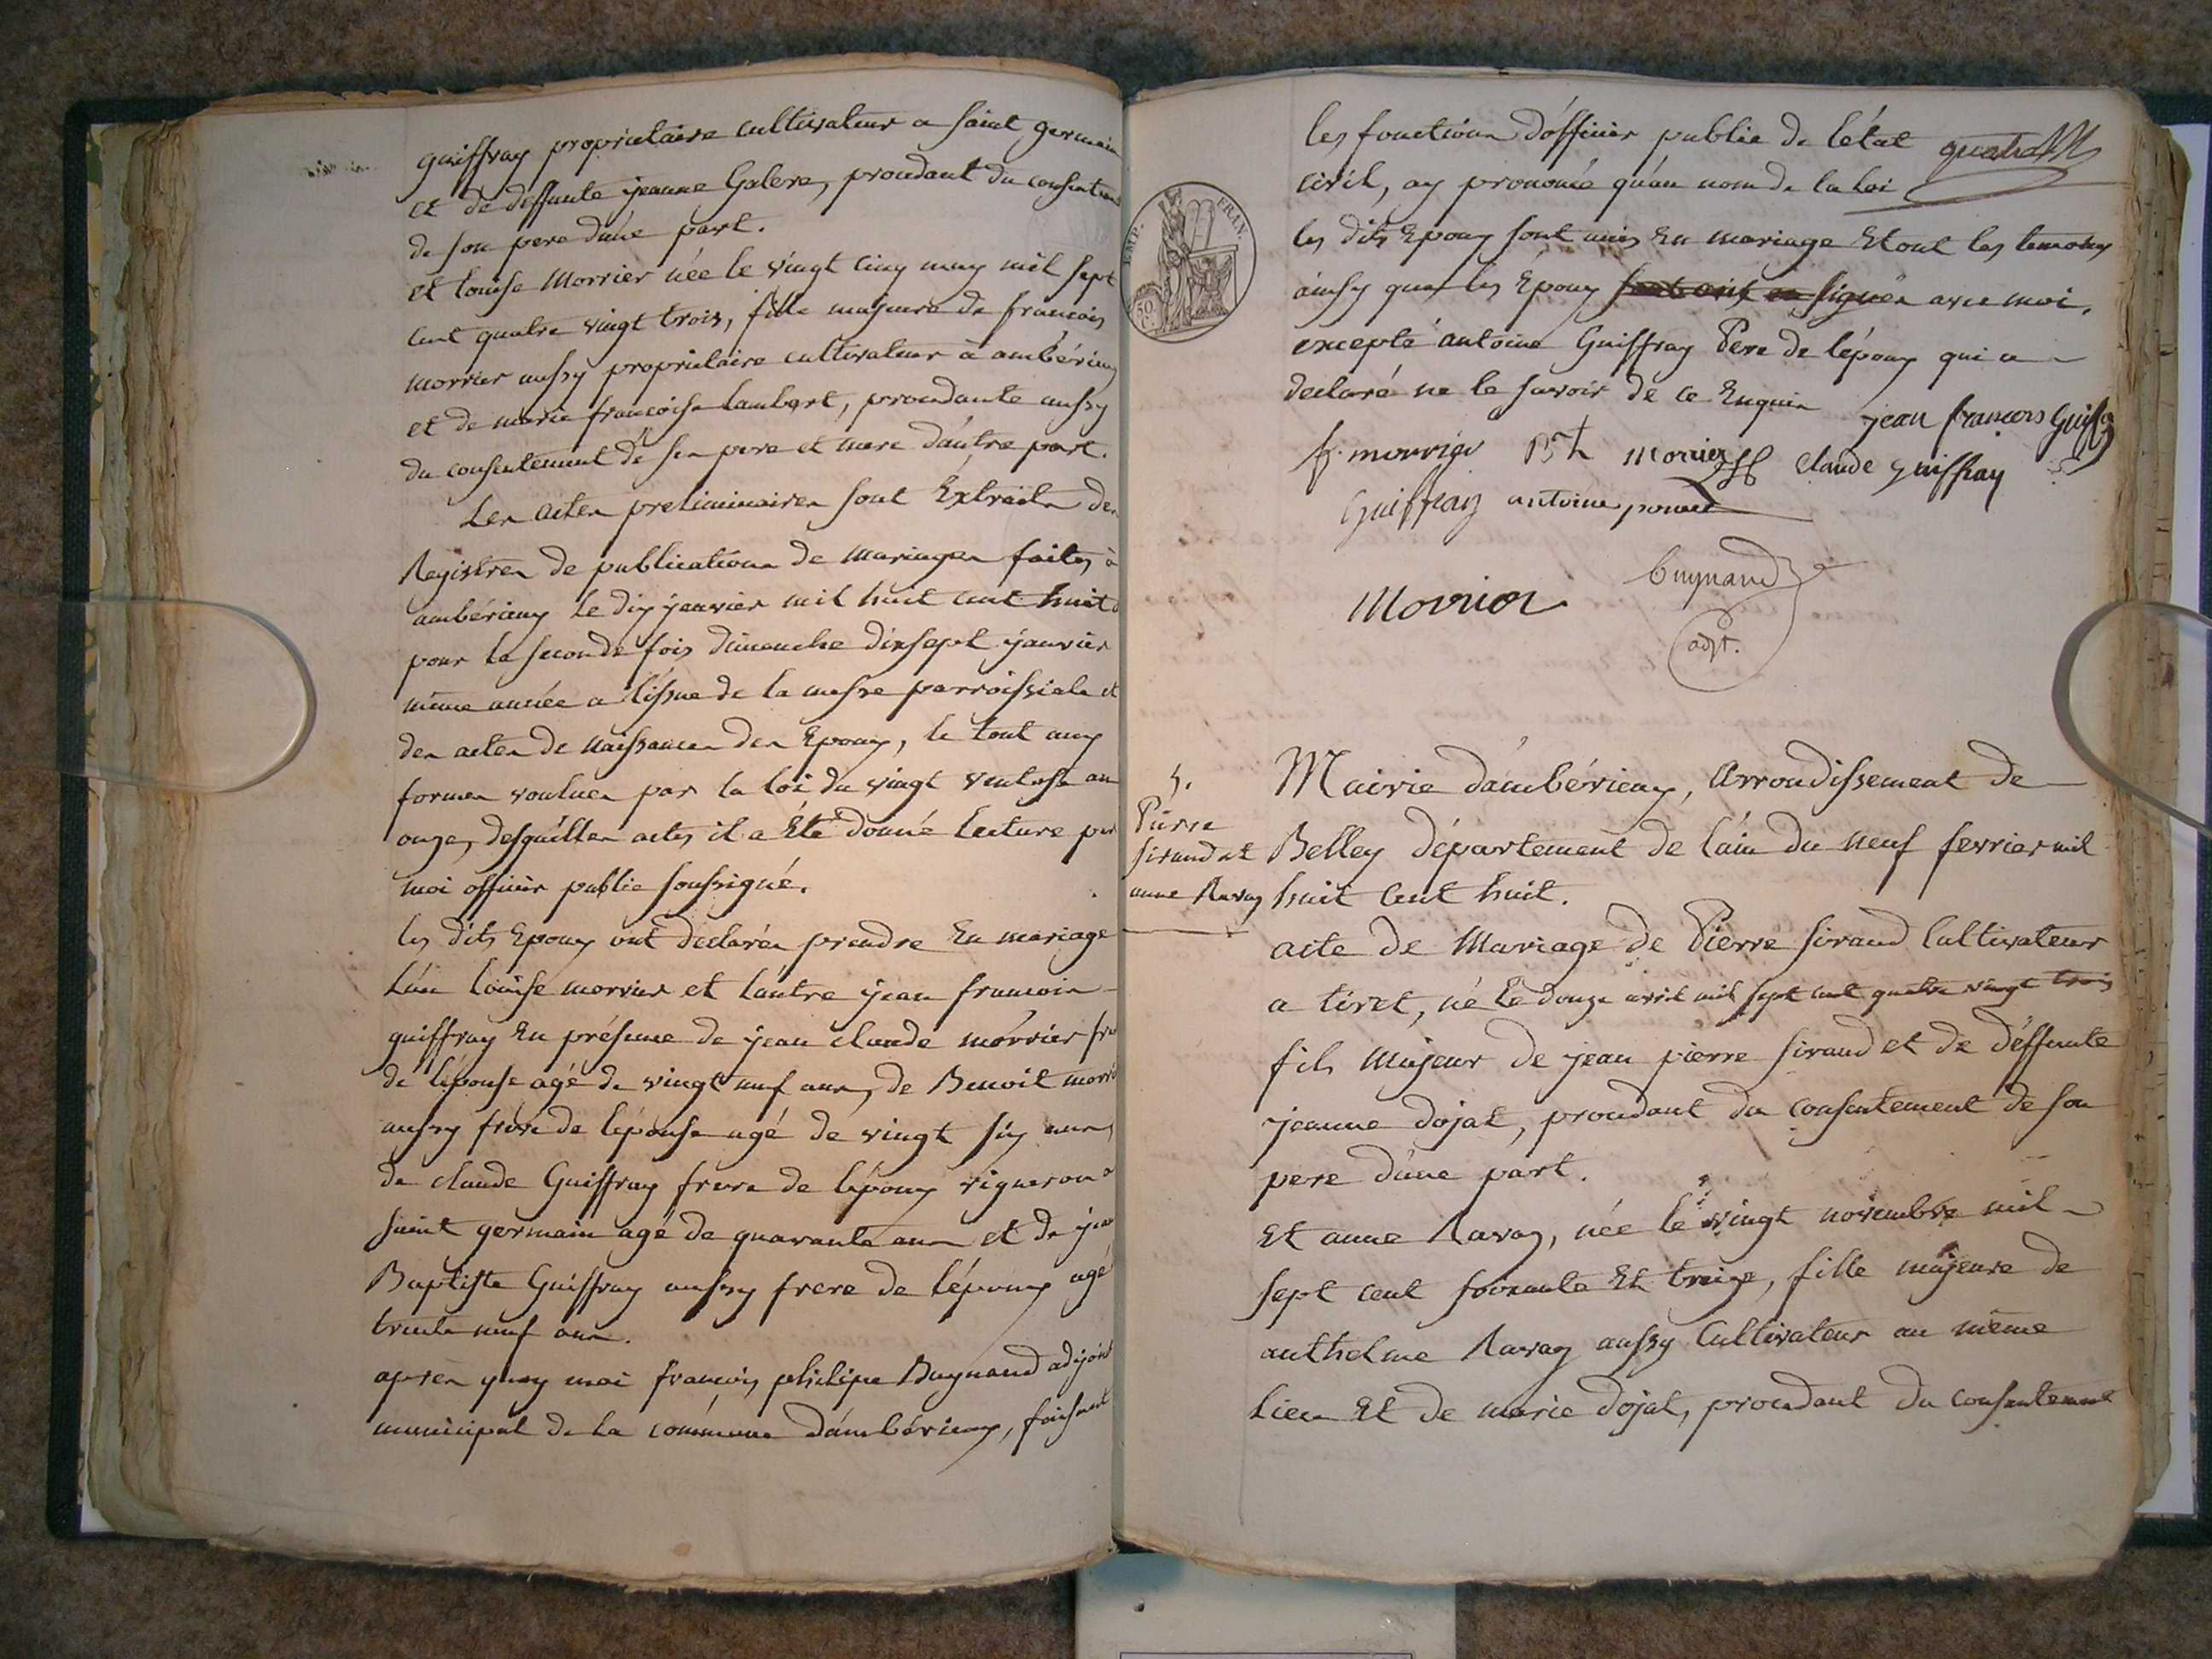 guiffray proprietaire cultivateur a saint germain
et de deffunte jeanne Galere, procedant du consentem
de son pere d'une part.
et louise Morrier née le vingt cinq may mil sept
cent quatre vingt trois, fille majeure de francois
morrier aussy proprietaire cultivateur à ambérieux
et de marie francoise lambert, procedante aussy
du consentement de ses pere et mere d'autre part.
Les actes preliminaires sont Extraits des
Registres de publications de mariages faites à
ambérieux le dix janvier mil huit cent huit
pour la seconde fois dimanche dixsept janvier
même année a l'issue de la messe parroissiale et
des actes de naissances des Epoux, le tout aux
formes voulues par la loi du vingt ventose an
onze, desquelles actes il a Eté donné lecture par
moi officier public soussigné.
les dits Epoux ont declarés prendre En mariage
l'un louise morrier et l'autre jean francois
guiffray En présence de jean claude morrier frere
de l'épouse agé de vingt neuf ans, de Benoit morrier
aussy frere de l'épouse agé de vingt six ans,
de claude Guiffray frere de l'époux vigneron a
saint germain agé de quarante ans et de jean
Baptiste Guiffray aussy frere de l'époux agé
trente neuf ans.
après quoy moi francois philipe Buynand adjoint
municipal de la commune d'ambérieux, faisant
les fonctions d'officier public de l'état quatre
civil, ay prononcé qu'au nom de la loi
EMP. FRAN.
50 C
les dits Epoux sont unis En mariage Et ont les temoins
ainsy que les Epoux signés avec moi,
excepté antoine Guiffray Pere de l'époux qui a
declaré ne le savoir de ce Enquis jean francois Guiffray
f. morrier Bt morrier claude guiffray
Guiffray antoine
Morrier buynand
adjt.
5.
Pierre
sirand et
anne Ravay
Mairie d'ambérieux, Arrondissement de
Belley département de l'ain du neuf fevrier mil
huit cent huit.
acte de Mariage de Pierre sirand Cultivateur
a tiret, né Le douze avril mil sept cent quatre vingt trois
fils majeur de jean pierre sirand et de deffunte
jeanne dojat, procedant du consentement de son
pere d'une part.
Et anne Ravay, née le vingt novembre mil
sept cent soixante Et treize, fille majeure de
anthelme Ravay aussy Cultivateur au même
lieu Et de marie dojat, procedant du consentement